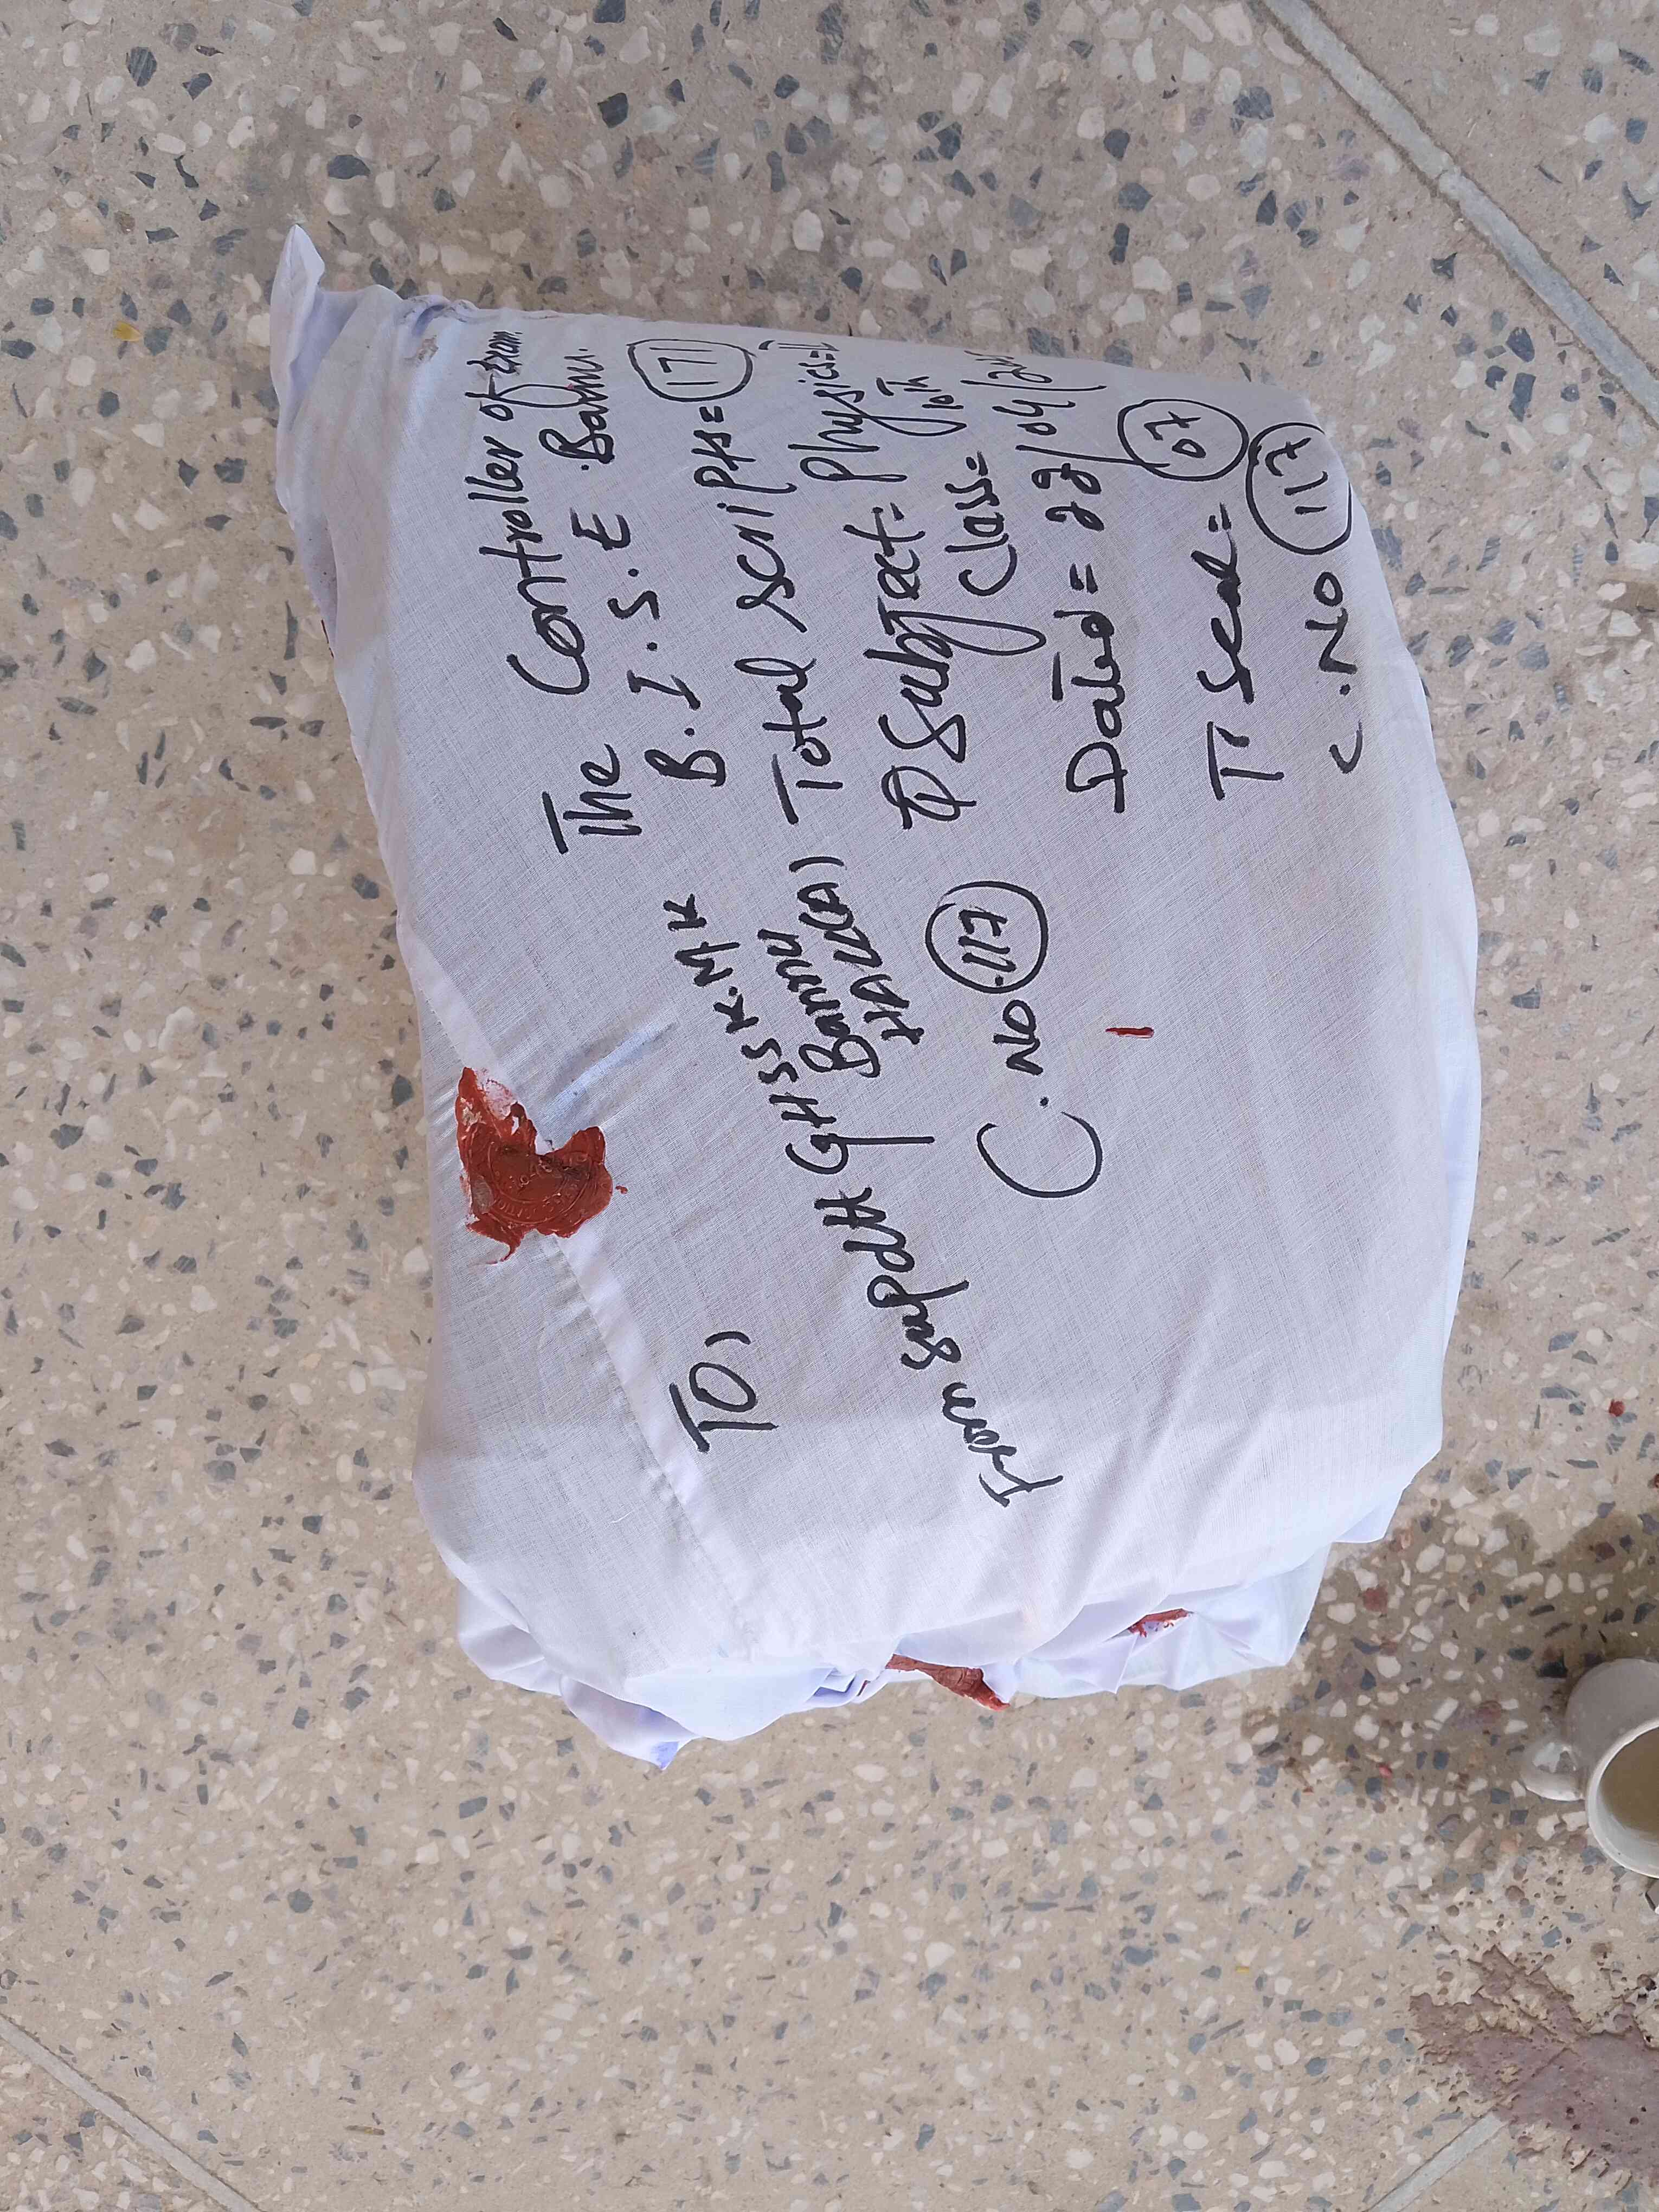 To,
The Controller of exam.
B.I.S.E Bannu.
Total Scripts= 171
Subject= Physics=II
Class= 10th
Dated= 22/04/
T Seal= 07
C.No 117
From Supdtt GHSS K.MK
Bannu
HALL(A)
C.No 117